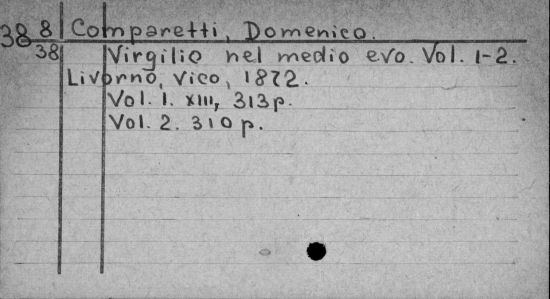 38 8 Comparetti, Domenico.
38 Virgilio nel medio evo. Vol. 1-2.
Livorno, Vico, 1872.
Vol. 1. XIII, 313 p.
Vol. 2. 310 p.